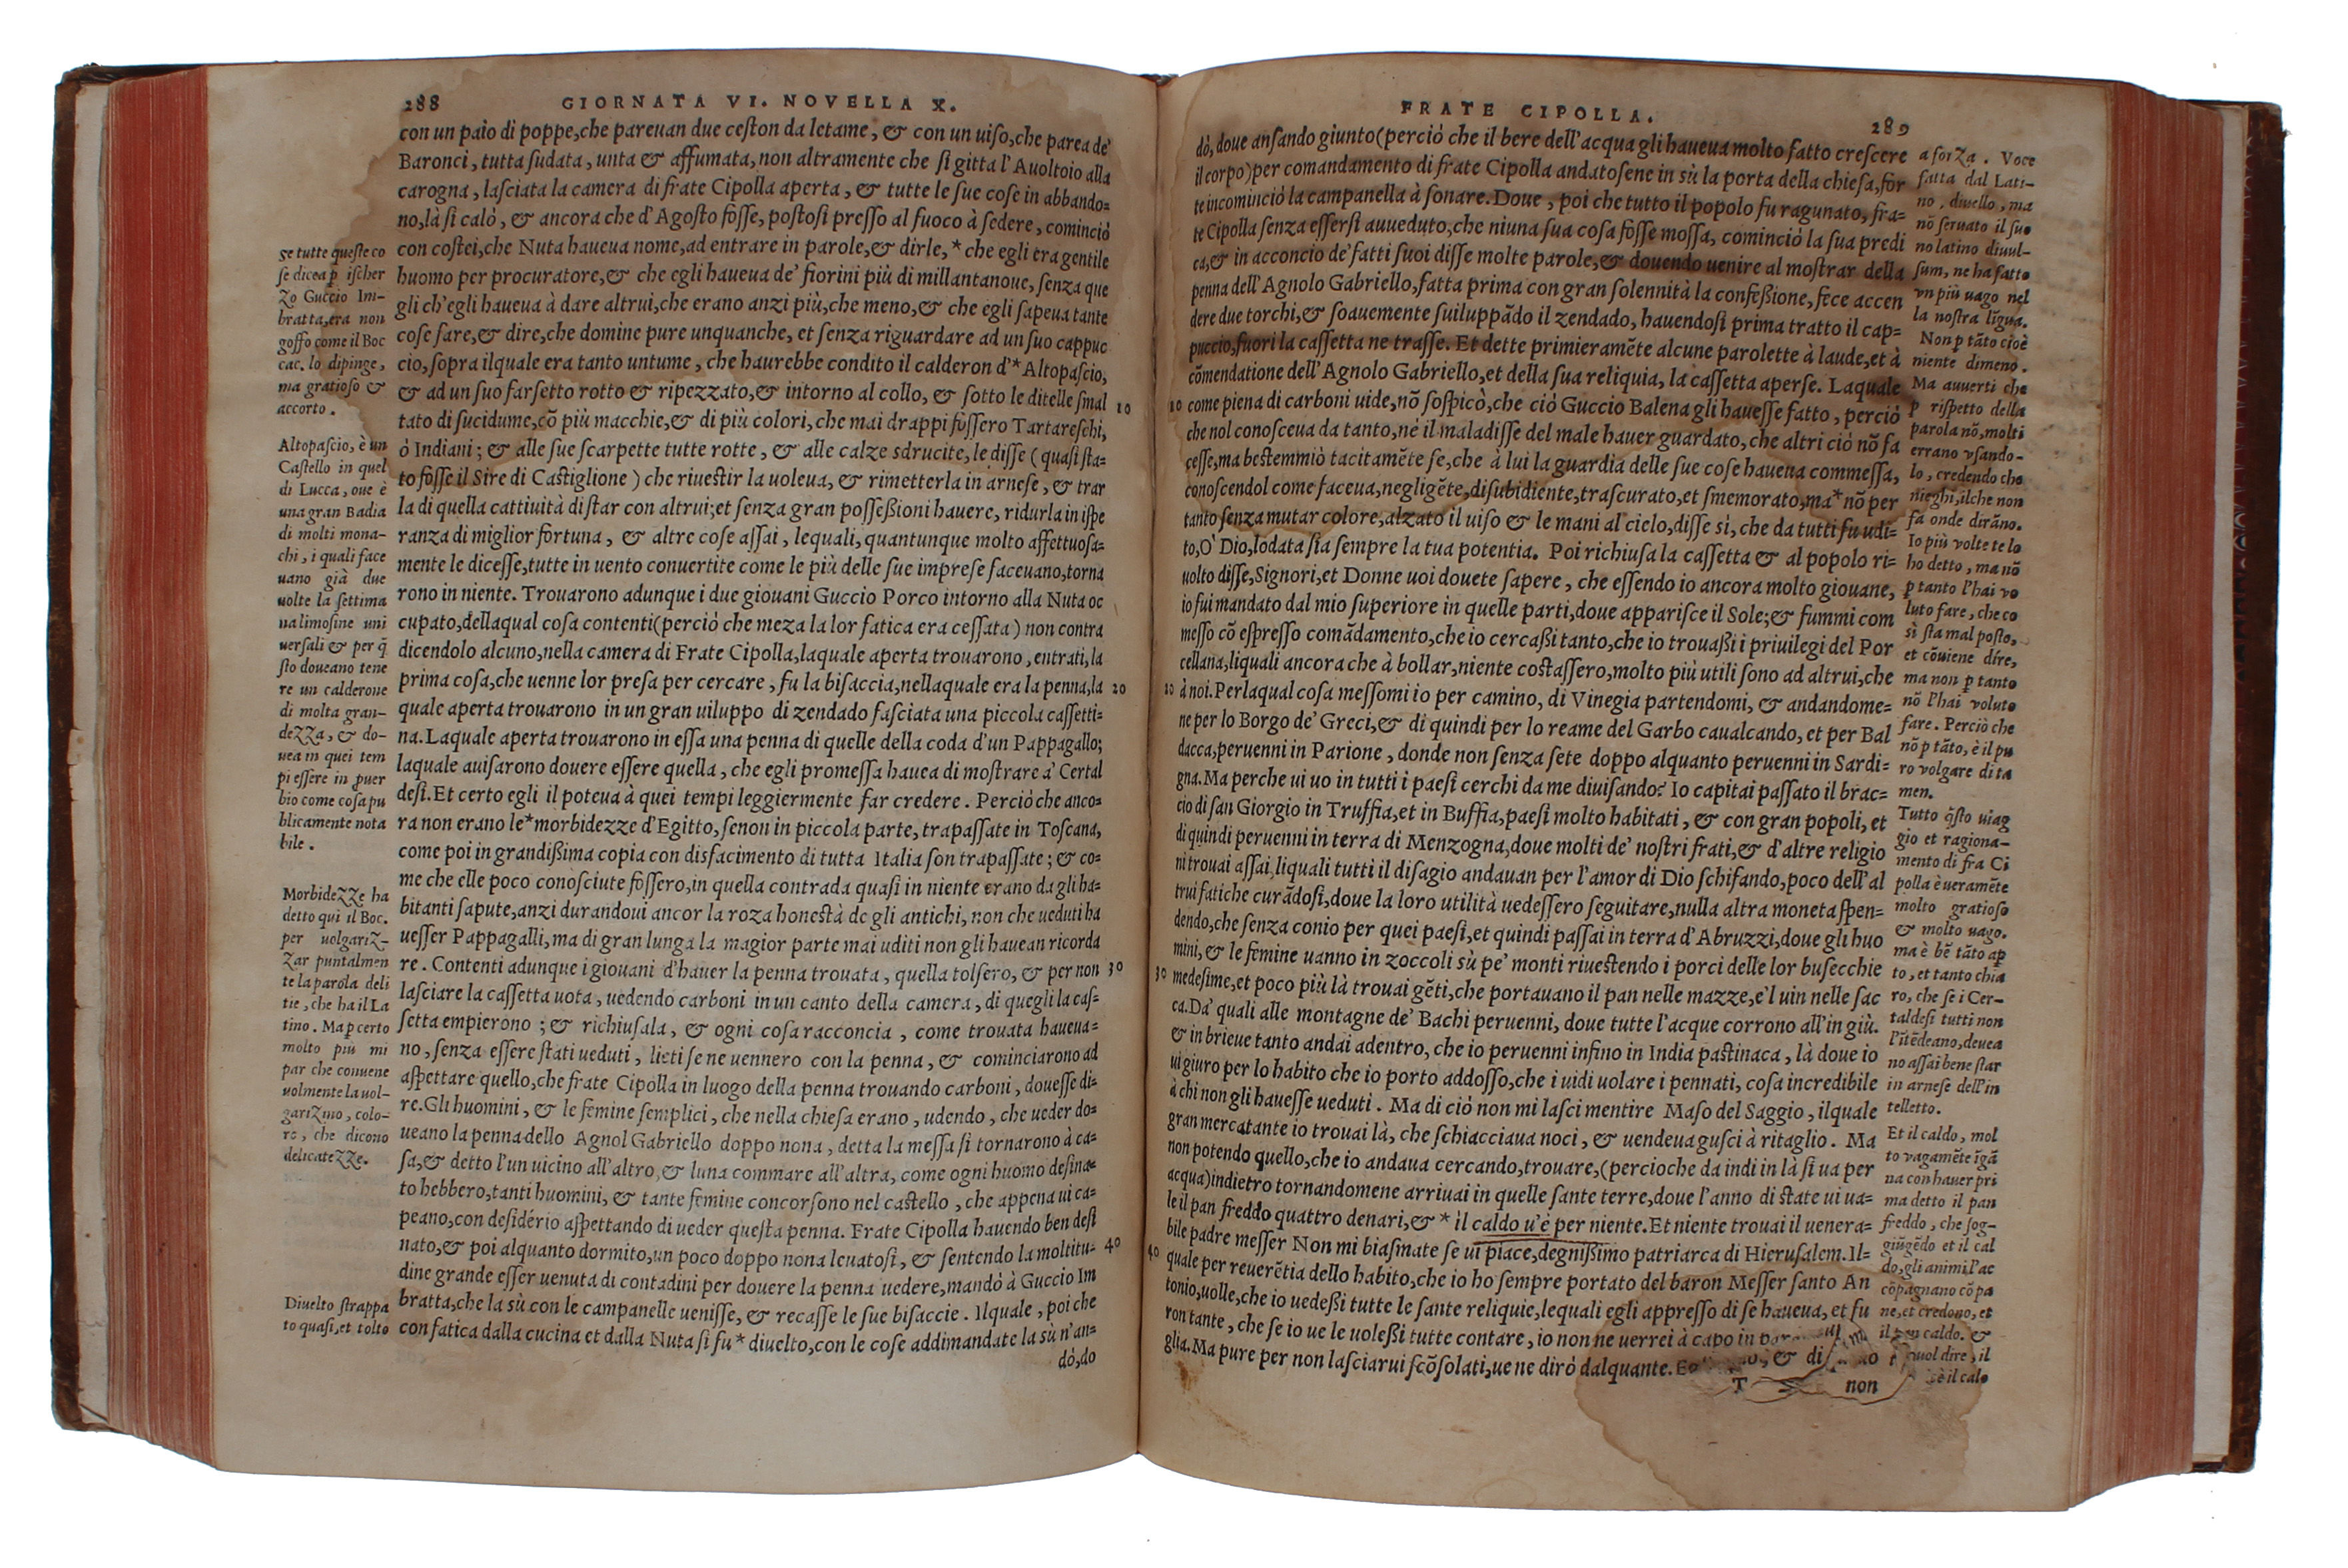 288
GIORNATA VI. NOVELLA X.
con un paio di poppe,che pareuan due ceston da letame, & con un uiso,che parea de'
Baronci, tutta sudata, unta & affumata, non altramente che si gitta l'Auoltoio alla
carogna, lasciata la camera di frate Cipolla aperta, & tutte le sue cose in abbando=
no,là si calò, & ancora che d'Agosto fosse, postosi presso al fuoco à sedere, cominciò
con costei,che Nuta haueua nome,ad entrare in parole,& dirle,* che egli era gentile
huomo per procuratore,& che egli haueua de' fiorini più di millantanoue, senza que
gli ch'egli haueua à dare altrui,che erano anzi più,che meno,& che egli sapeua tante
cose fare,& dire,che domine pure unquanche, et senza riguardare ad un suo cappuc
cio,sopra ilquale era tanto untume, che haurebbe condito il calderon d'* Altopascio,
& ad un suo farsetto rotto & ripezzato,& intorno al collo, & sotto le ditelle smal 10
tato di sucidume,cõ più macchie,& di più colori,che mai drappi fossero Tartareschi,
ò Indiani; & alle sue scarpette tutte rotte, & alle calze sdrucite, le disse (quasi sta=
to fosse il Sire di Castiglione) che riuestir la uoleua, & rimetterla in arnese, & trar
la di quella cattiuità di star con altrui;et senza gran possessioni hauere, ridurla in ispe
ranza di miglior fortuna, & altre cose assai, lequali, quantunque molto affettuosa=
mente le dicesse,tutte in uento conuertite come le più delle sue imprese faceuano,torna
rono in niente. Trouarono adunque i due giouani Guccio Porco intorno alla Nuta oc
cupato,dellaqual cosa contenti(perciò che meza la lor fatica era cessata) non contra
dicendolo alcuno,nella camera di Frate Cipolla,laquale aperta trouarono, entrati,la
prima cosa,che uenne lor presa per cercare, fu la bisaccia,nellaquale era la penna,la 20
quale aperta trouarono in un gran uiluppo di zendado fasciata una piccola cassetti=
na. Laquale aperta trouarono in essa una penna di quelle della coda d'un Pappagallo;
laquale auisarono douere essere quella, che egli promessa hauea di mostrare a' Certal
desi. Et certo egli il poteua à quei tempi leggiermente far credere. Perciò che anco=
ra non erano le*morbidezze d'Egitto,senon in piccola parte, trapassate in Toscana,
come poi in grandissima copia con disfacimento di tutta Italia son trapassate; & co=
me che elle poco conosciute fossero,in quella contrada quasi in niente erano da gli ha=
bitanti sapute,anzi durandoui ancor la roza honestà de gli antichi, non che ueduti ha
uesser Pappagalli,ma di gran lunga la magior parte mai uditi non gli hauean ricorda
re. Contenti adunque i giouani d'hauer la penna trouata, quella tolsero, & per non 30
lasciare la cassetta uota, uedendo carboni in un canto della camera, di quegli la cas=
setta empierono; & richiusala, & ogni cosa racconcia, come trouata haueua=
no, senza essere stati ueduti, lieti se ne uennero con la penna, & cominciarono ad
aspettare quello,che frate Cipolla in luogo della penna trouando carboni, douesse di=
re. Gli huomini, & le femine semplici, che nella chiesa erano, udendo, che ueder do=
ueano la penna dello Agnol Gabriello doppo nona, detta la messa si tornarono à ca=
sa,& detto l'un uicino all'altro,& luna commare all'altra, come ogni huomo desina=
to hebbero,tanti huomini, & tante femine concorsono nel castello, che appena ui ca=
peano,con desidério aspettando di ueder questa penna. Frate Cipolla hauendo ben desi
nato,& poi alquanto dormito,un poco doppo nona leuatosi, & sentendo la moltitu= 40
dine grande esser uenuta di contadini per douere la penna uedere,mandò à Guccio Im
bratta,che la sù con le campanelle uenisse, & recasse le sue bisaccie. Ilquale, poi che
con fatica dalla cucina et dalla Nuta si fu* diuelto,con le cose addimandate la sù n'an=
dò,do
Se tutte queste co
se dicea p ischer
zo Guccio Im-
bratta,era non
goffo come il Boc
cac. lo dipinge,
ma gratioso &
accorto.
Altopascio, è un
Castello in quel
di Lucca, oue è
una gran Badia
di molti mona-
chi, i quali face
uano già due
uolte la settima
na limosine uni
uersali & per q̃
sto doueano tene
re un calderone
di molta gran-
dezza, & do-
uea in quei tem
pi essere in prouer
bio come cosa pu
blicamente nota
bile.
Morbidezze ha
detto qui il Boc.
per uolgariz-
zar puntalmen
te la parola deli
tie, che ha il La
tino. Ma p certo
molto più mi
par che conuene
uolmente la uol-
garizino, colo-
ro, che dicono
delicatezze.
Diuelto strappa
to quasi,et tolto
FRATE CIPOLLA.
289
dò, doue ansando giunto(perciò che il bere dell'acqua gli haueua molto fatto crescere
il corpo)per comandamento di frate Cipolla andatosene in sù la porta della chiesa,for
te incominciò la campanella à sonare. Doue, poi che tutto il popolo fu ragunato, fra=
te Cipolla senza essersi auueduto,che niuna sua cosa fosse mossa, cominciò la sua predi
ca,& in acconcio de' fatti suoi disse molte parole,& douendo uenire al mostrar della
penna dell'Agnolo Gabriello,fatta prima con gran solennità la confessione, fece accen
dere due torchi,& soauemente suiluppãdo il zendado, hauendosi prima tratto il cap=
puccio,fuori la cassetta ne trasse. Et dette primieramẽte alcune parolette à laude,et à
cõmendatione dell'Agnolo Gabriello,et della sua reliquia, la cassetta aperse. Laquale
10 come piena di carboni uide,nõ sospicò,che ciò Guccio Balena gli hauesse fatto, perciò
che nol conosceua da tanto,né il maladisse del male hauer guardato,che altri ciò nõ fa
cesse,ma bestemmiò tacitamẽte se,che à lui la guardia delle sue cose haueua commessa,
conoscendol come faceua,negligẽte,disubidiente,trascurato,et smemorato,ma*nõ per
tanto senza mutar colore,alzato il uiso & le mani al cielo,disse sì,che da tutti fu udi=
to,O' Dio,lodata sia sempre la tua potentia. Poi richiusa la cassetta & al popolo ri=
uolto disse,Signori,et Donne uoi douete sapere, che essendo io ancora molto giouane,
io fui mandato dal mio superiore in quelle parti,doue apparisce il Sole;& fummi com
messo cõ espresso comãdamento,che io cercassi tanto,che io trouassi i priuilegi del Por
cellana,liquali ancora che à bollar,niente costassero,molto più utili sono ad altrui,che
20 à noi. Perlaqual cosa messomi io per camino, di Vinegia partendomi, & andandome=
ne per lo Borgo de' Greci,& di quindi per lo reame del Garbo caualcando, et per Bal
dacca,peruenni in Parione, donde non senza sete doppo alquanto peruenni in Sardi=
gna. Ma perche ui uo in tutti i paesi cerchi da me diuisando? Io capitai passato il brac=
cio di san Giorgio in Truffia,et in Buffia,paesi molto habitati, & con gran popoli, et
di quindi peruenni in terra di Menzogna,doue molti de' nostri frati,& d'altre religio
ni trouai assai,liquali tutti il disagio andauan per l'amor di Dio schifando,poco dell'al
trui fatiche curãdosi,doue la loro utilità uedessero seguitare,nulla altra moneta spen=
dendo,che senza conio per quei paesi,et quindi passai in terra d'Abruzzi,doue gli huo
mini,& le femine uanno in zoccoli sù pe' monti riuestendo i porci delle lor busecchie
30 medesime,et poco più là trouai gẽti,che portauano il pan nelle mazze,e'l uin nelle sac
ca. Da' quali alle montagne de' Bachi peruenni, doue tutte l'acque corrono all'in giù.
& in brieue tanto andai adentro, che io peruenni infino in India pastinaca, là doue io
ui giuro per lo habito che io porto addosso,che i uidi uolare i pennati, cosa incredibile
à chi non gli hauesse ueduti. Ma di ciò non mi lasci mentire Maso del Saggio, ilquale
gran mercatante io trouai là, che schiacciaua noci, & uendeua gusci à ritaglio. Ma
non potendo quello,che io andaua cercando,trouare,(percioche da indi in là si ua per
acqua)indietro tornandomene arriuai in quelle sante terre,doue l'anno di state ui ua=
le il pan freddo quattro denari,& * il caldo u'è per niente. Et niente trouai il uenera=
bile padre messer Non mi biasmate se ui piace,degnissimo patriarca di Hierusalem. Il=
40 quale per reuerẽtia dello habito,che io ho sempre portato del baron Messer santo An
tonio,uolle,che io uedessi tutte le sante reliquie,lequali egli appresso di se haueua, et fu
ron tante, che se io ue le uolessi tutte contare, io non ne uerrei à capo in
glia. Ma pure per non lasciarui scõsolati,ue ne dirò dalquante. & di
T non
a forza. Voce
fatta dal Lati-
no, diuello, ma
nõ seruato il suo
no latino diuul-
sum, ne ha fatto
vn più uago nel
la nostra lĩgua.
Non p tãto cioè
niente dimeno.
Ma auuerti che
p rispetto della
parola nõ,molti
errano vsando-
lo, credendo che
nieghi,ilche non
fa onde dirãno.
Io più volte te lo
ho detto, ma nõ
p tanto l'hai vo
luto fare, che co
sì sta mal posto,
et cõuiene dire,
ma non p tanto
nõ l'hai voluto
fare. Perciò che
nõ p tãto, è il pu
ro volgare di ta
men.
Tutto q̃sto uiag
gio et ragiona-
mento di fra Ci
polla è ueramẽte
molto gratioso
& molto uago.
ma è bẽ tãto ap
to, et tanto chia
ro, che se i Cer-
taldesi tutti non
l'ĩtẽdeano,douea
no assai bene star
in arnese dell'in
telletto.
Et il caldo, mol
to vagamẽte ĩgã
na con hauer pri
ma detto il pan
freddo, che sog-
giũgẽdo et il cal
do,gli animi l'ac
cõpagnano cõ pa
ne,et credono, et
il pan caldo. &
uuol dire, il
è il calo